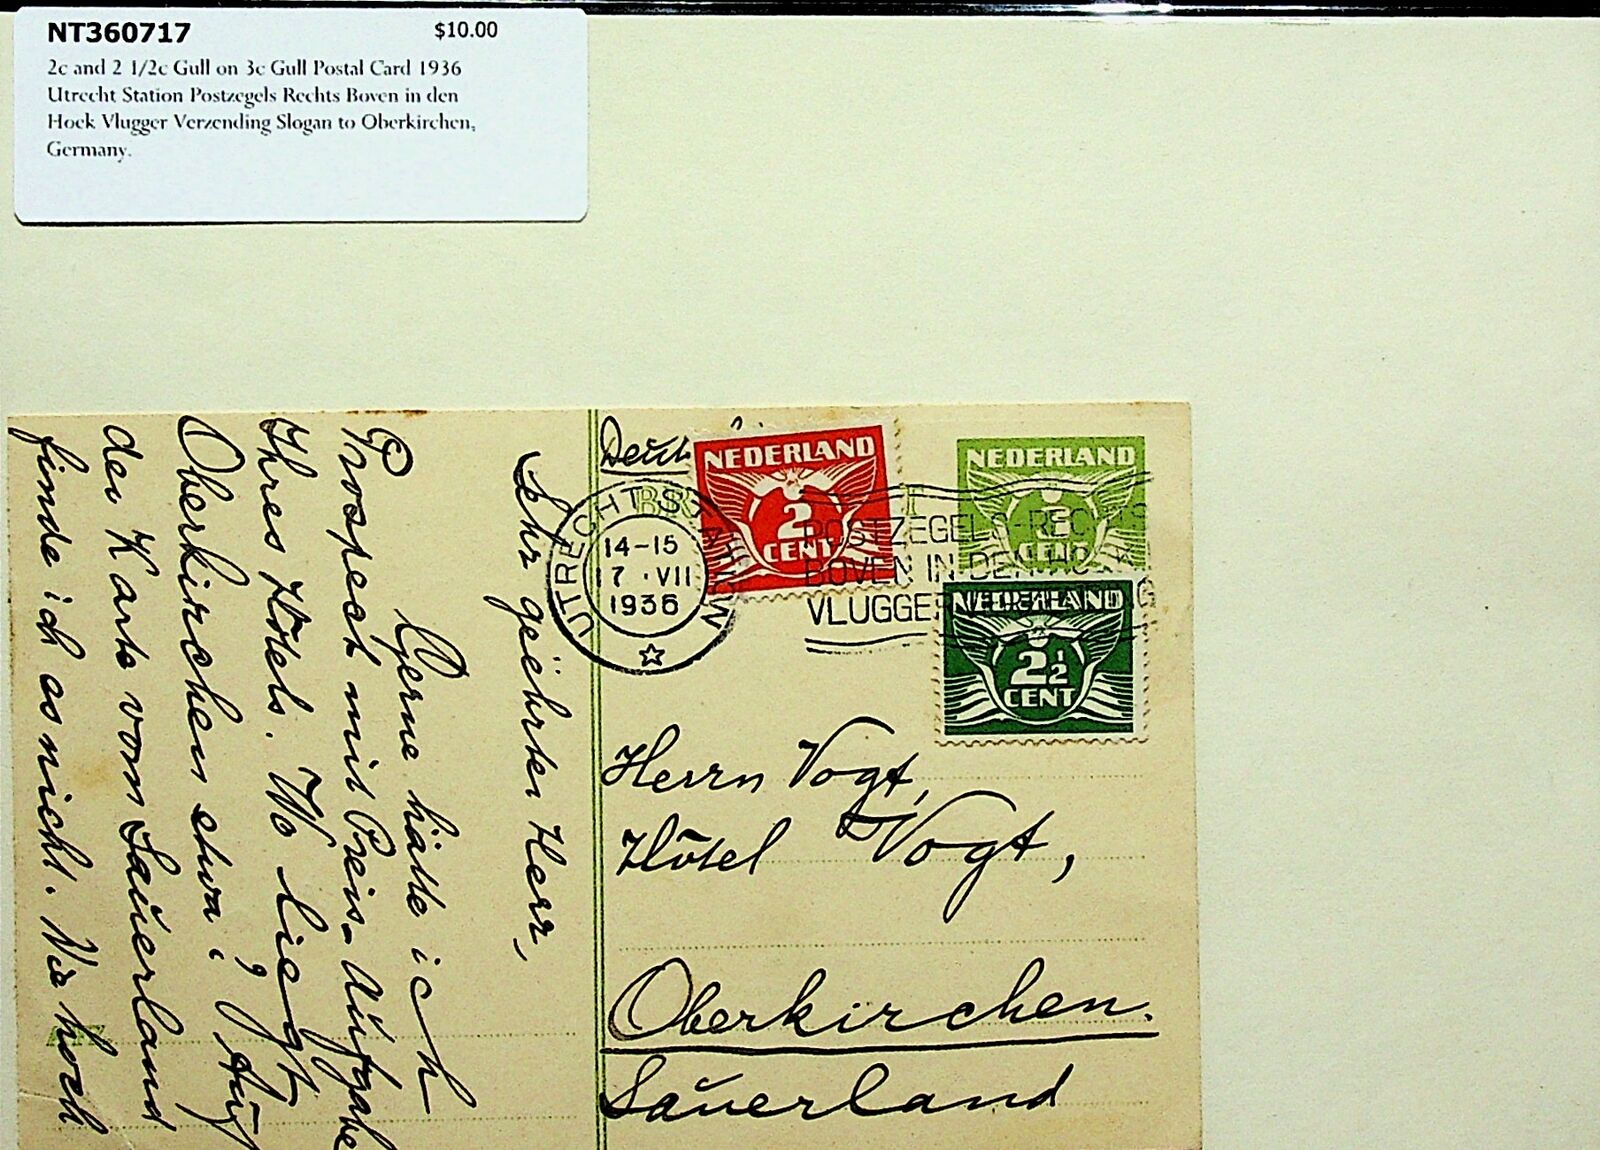 NT360717 $10.00
2c and 2 1/2c Gull on 3c Gull Postal Card 1936
Utrecht Station Postzegels Rechts Boven in den
Hoek Vlugger Verzending Slogan to Oberkirchen,
Germany.
NEDERLAND
2
CENT
NEDERLAND
CENT
NEDERLAND
2½
CENT
UTRECHT STATION
14-15
17 · VII
1936
POSTZEGELS-RECHTS
BOVEN IN DEN HOEK
VLUGGER
Herrn Vogt,
Hotel Vogt,
Oberkirchen.
Sauerland
Sehr geehrter Herr,
Gerne hätte ich
Prospect mit Preis-Aufgabe
Ihres Hotels. Wo liegt
Oberkirchen etwa? Auf
der Karte vom Sauerland
finde ich es nicht. Wie hoch